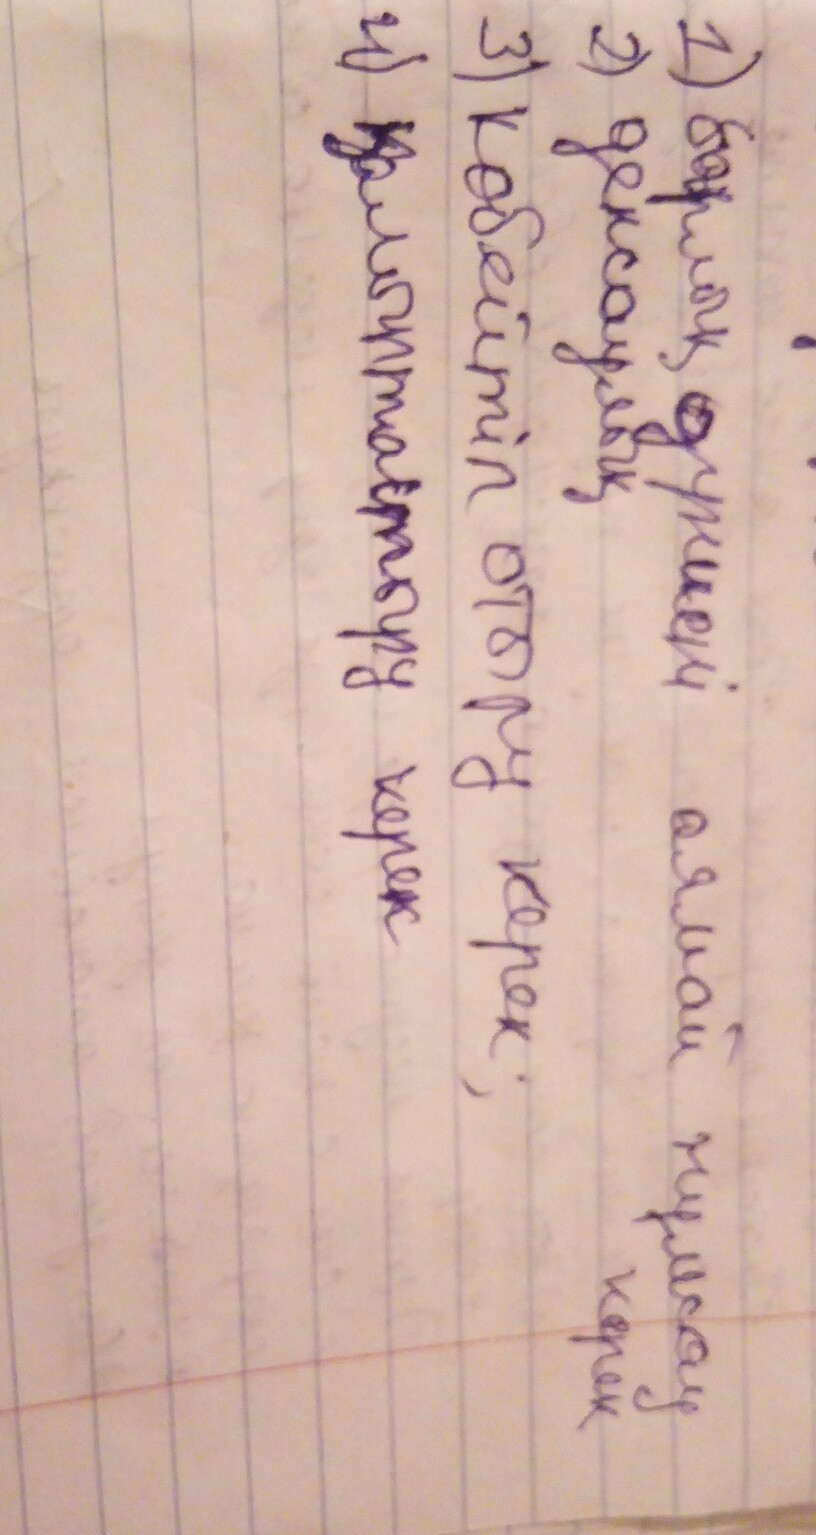 1) барлық дүниені аямай жұмсау
керек
2) денсаулық
3) көбейтіп отыру керек;
4) қалыптастыру керек